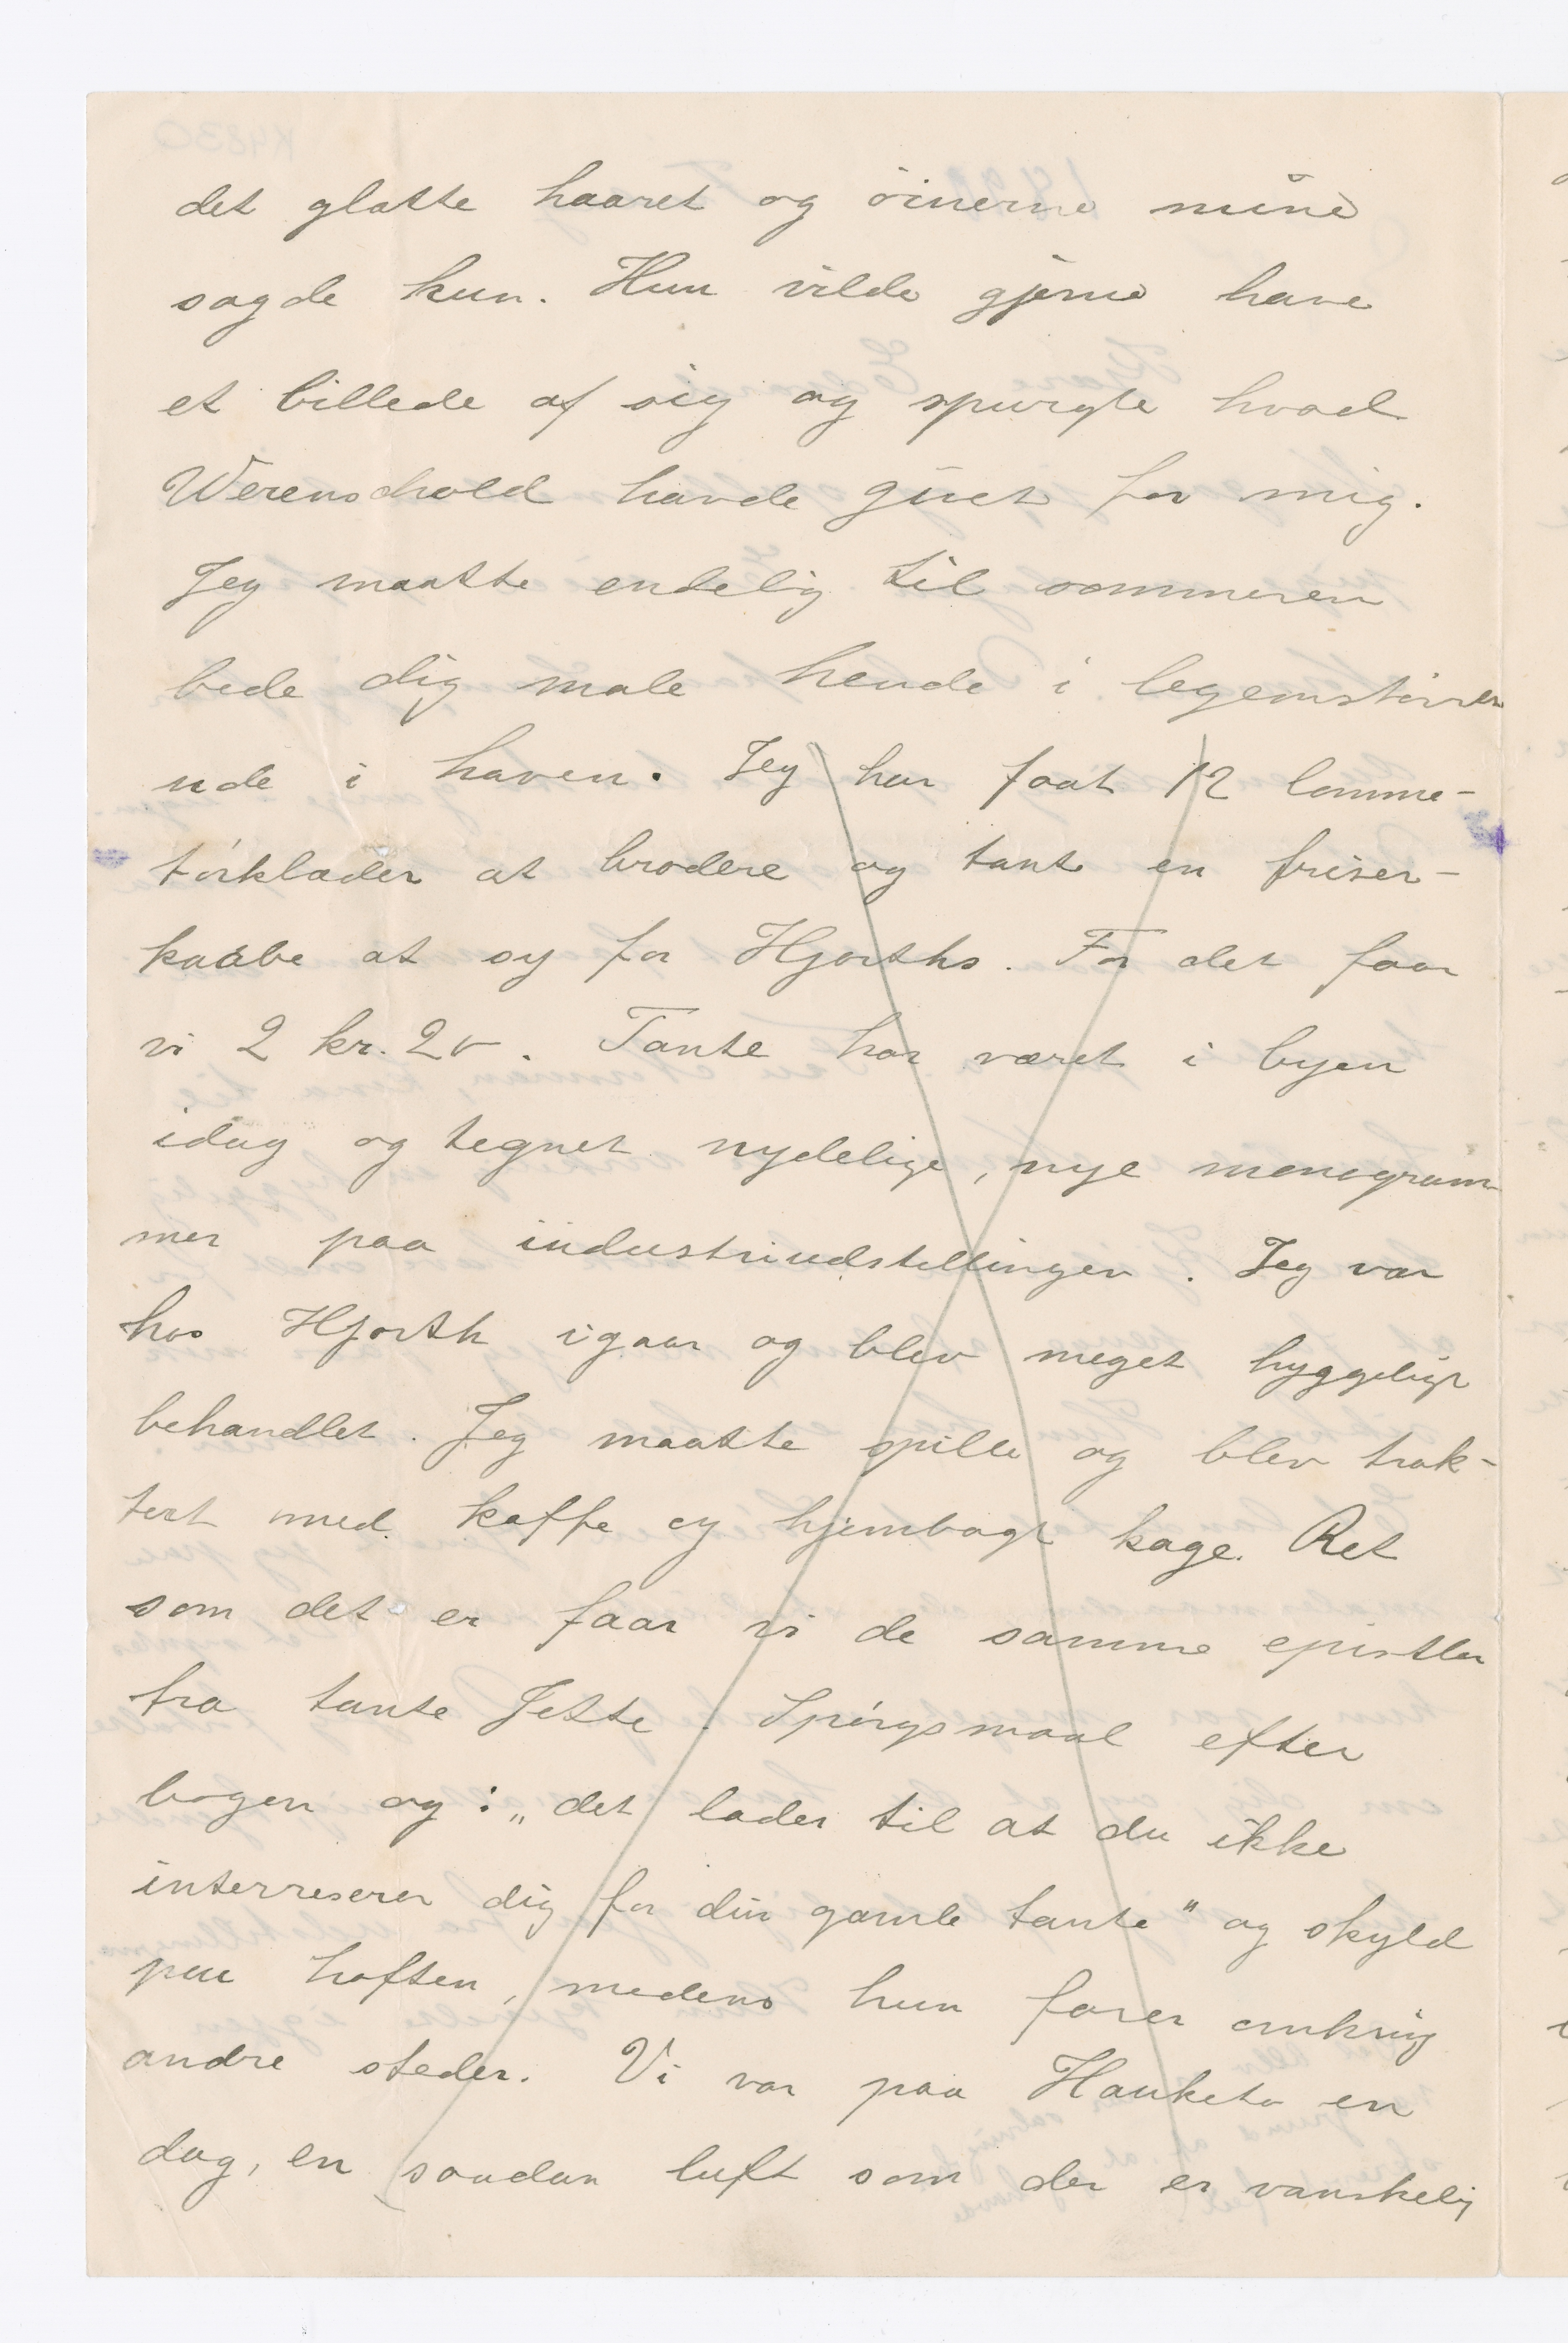 det glatte haaret og öinerne mine
sagde hun. Hun vilde gjerne have
et billede af sig og spurgte hvad
Werenschold havde givet for mig.
Jeg maatte endelig til sommeren
bede dig male hende i legemstörrel
ude i haven. Jeg har faat 12 lomme-
törklæder at brodere og tante en friser-
kaabe at sy for Hjorths. For det faar
vi 2 kr. 20. Tante har været i byen
idag og tegnet nydelige, nye monogram-
mer paa industriudstellingen. Jeg var
hos Hjorth igaar og blev meget hyggeligt
behandlet. Jeg maatte spille og blev trak-
tert med kaffe og hjembagt kage. Ret
som det er faar vi de samme epistler
fra tante Jette. Spörgsmaal efter
bogen og: „det lader til at du ikke
interreserer dig for din gamle tante" og skyld
paa hoften, medens hun farer omkring
andre steder. Vi var paa Hauketo en
dag, en saadan luft som der er vanskelig